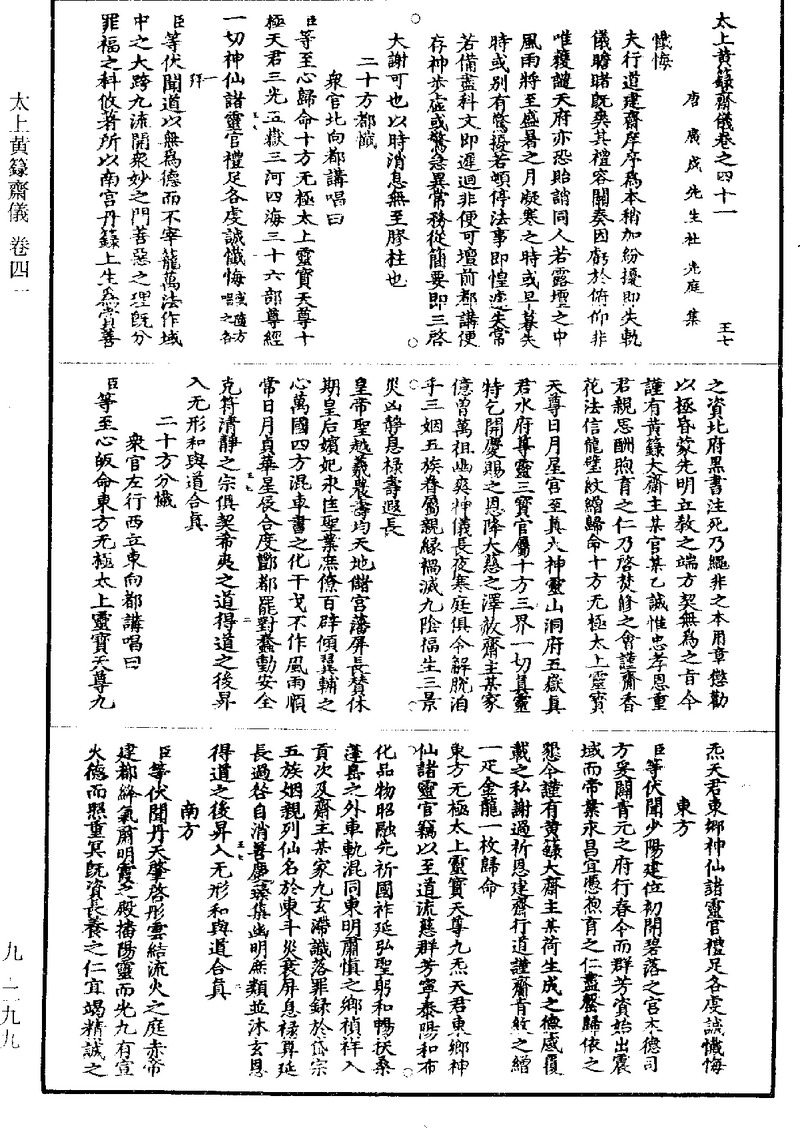 太上黃籙齋儀卷之四十一
王七
唐廣成先生杜光庭集
懺悔
夫行道建齋庠序為本稍加紛擾即失軌
儀瞻睹既爽其禮容關奏因虧於俯仰非
唯穫譴天府亦恐貽誚同人若露壇之中
風雨將至盛暑之月凝寒之時或早暮失
時或別有驚擾若頓停法事即惶遽失常
若備盡科文即遲迴非便可壇前都講便
存神步虛或驚急異常務從簡要即三啓
大謝可也以時消息無至膠柱也
二十方都懺
衆官北向都講唱曰
臣等至心歸命十方无極太上靈寶天尊十
極天君三光五嶽三河四海三十六部尊經
一切神仙諸靈官禮足各虔誠懺悔
臣等伏聞道以無為德而不宰籠萬法作域
中之大跨九流開衆妙之門善惡之理既分
罪福之科攸著所以南宮丹籙上生為賞善
之資北府黑書注死乃繩非之本用章懲勸
以極昏蒙先明立教之端方契無為之旨今
謹有黃籙大齋主某官某乙誠惟忠孝恩重
君親思酬煦育之仁乃啓焚修之會謹齋香
花法信龍璧紋繒歸命十方无極太上靈寶
天尊日月星宮至真大神靈山洞府五嶽真
君水府尊靈三寶官屬十方三界一切真靈
特乞開慶賜之恩降大慈之澤赦齋主某家
億曾萬祖幽爽神儀長夜寒庭俱令解脫洎
乎三姻五族眷屬親緣禍滅九陰福生三景
災凶靜息祿壽遐長
皇帝聖越羲農壽均天地儲宮藩屏長贊休
期皇后嬪妃永匡聖業庶僚百辟傾翼輔之
心萬國四方混車書之化干戈不作風雨順
常日月貞華星辰合度酆都罷對蠢動安全
克符清靜之宗俱契希夷之道得道之後昇
入无形和與道合真
二十方分懺
衆官左行西立東向都講唱曰
臣等至心皈命東方无極太上靈寶天尊九
炁天君東鄉神仙諸靈官禮足各虔誠懺悔
東方
臣等伏聞少陽建位初開碧落之宮木德司
方爰闢青元之府行春令而群芳資始出震
域而帝業永昌宜憑煦育之仁盡罄歸依之
懇今謹有黃籙大齋主某荷生成之德感覆
載之私謝過祈恩建齋行道謹齋青紋之繒
一疋金龍一枚歸命
東方无極太上靈寶天尊九炁天君東鄉神
仙諸靈官竊以至道流慈群芳寧泰陽和布
化品物昭融先祈國祚延弘聖躬和暢扶桑
蓬島之外車軌混同東明肅慎之鄉禎祥入
貢次及齋主某家九玄滯讖落罪錄於岱宗
五族姻親列仙名於東斗災衰屏息祿算延
長過咎自消善慶臻集幽明庶類並沐玄恩
得道之後昇入无形和與道合真
南方
臣等伏聞丹天肇啓彤雲結流火之庭赤帝
建都絳氣肅明霞之殿播陽靈而光九有宣
火德而照重冥既資長養之仁宜竭精誠之
太上黃籙齋儀 卷四一
九—二九九